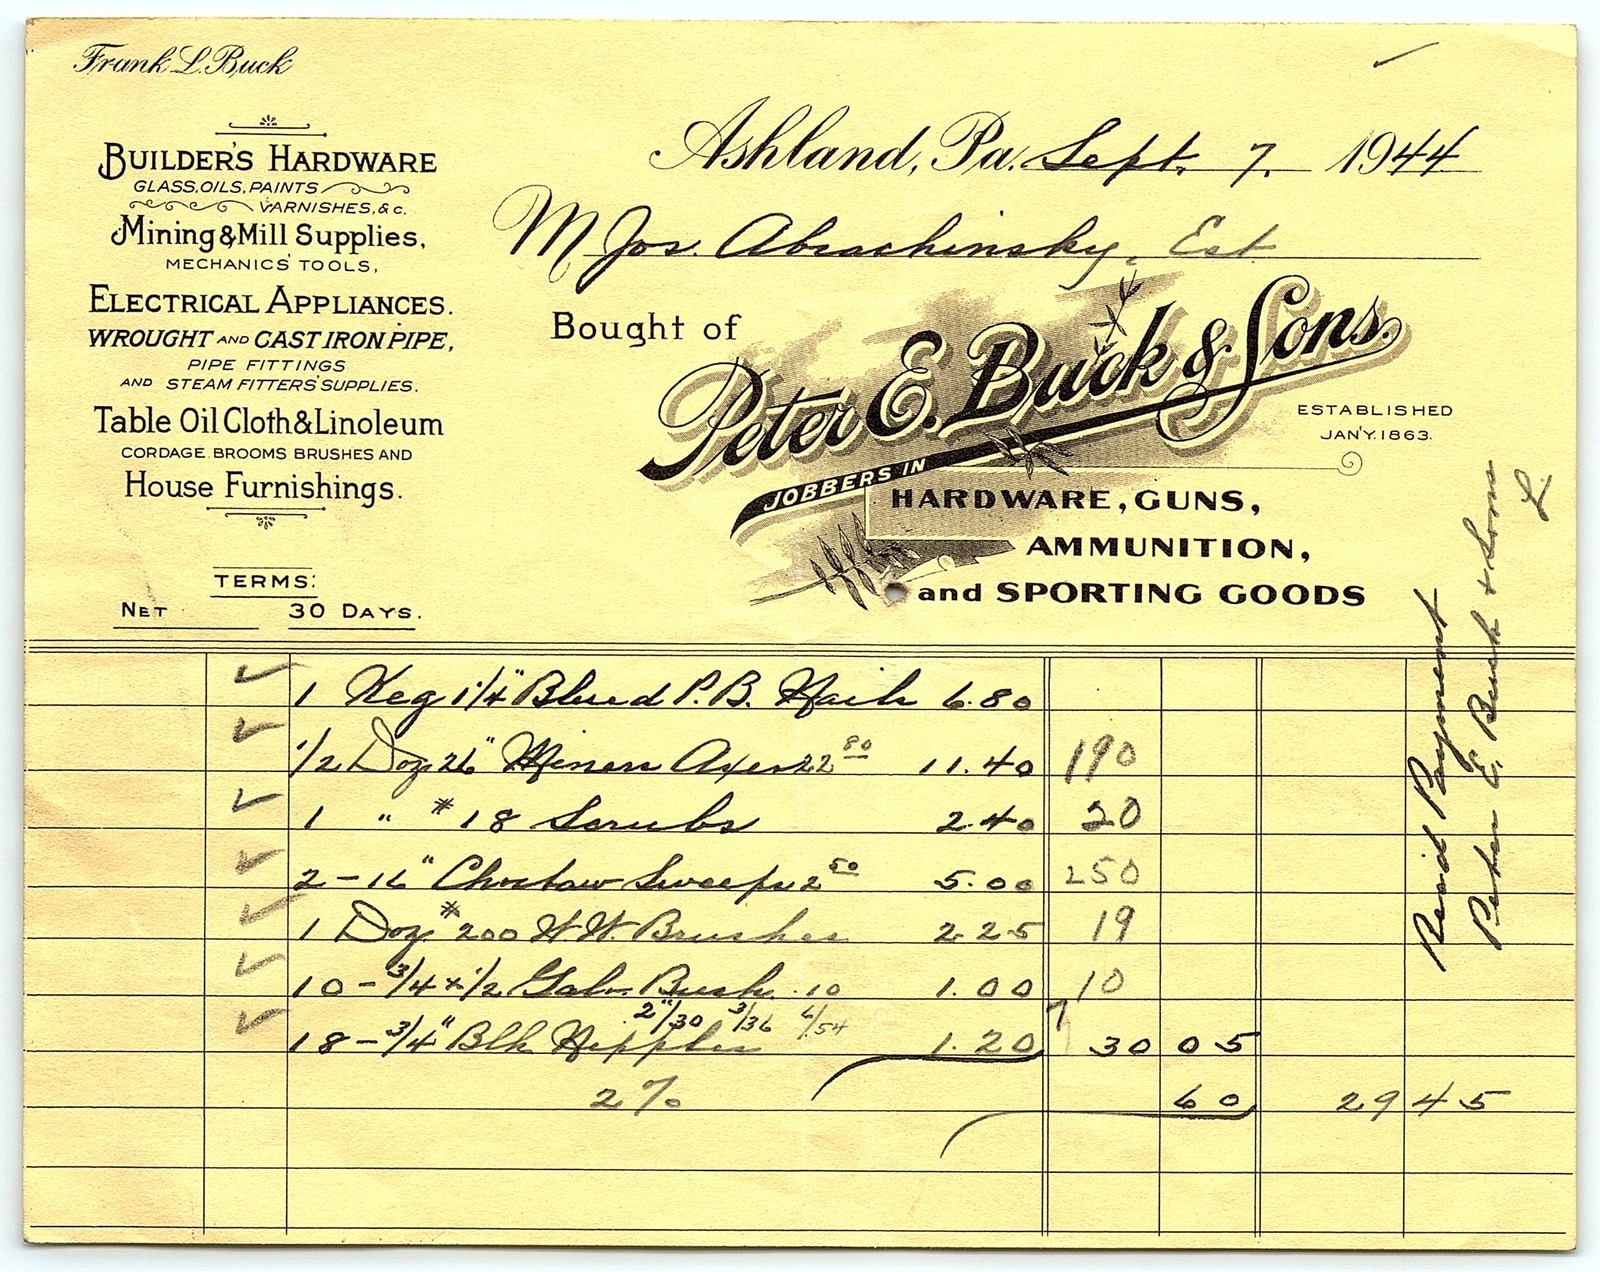 Frank L. Buck
BUILDER'S HARDWARE
GLASS, OILS, PAINTS
VARNISHES, & C.
Mining & Mill Supplies,
MECHANICS' TOOLS,
ELECTRICAL APPLIANCES.
WROUGHT AND CAST IRON PIPE,
PIPE FITTINGS
AND STEAM FITTERS' SUPPLIES.
Table Oil Cloth & Linoleum
CORDAGE. BROOMS BRUSHES AND
House Furnishings.
TERMS:
NET 30 DAYS.
Ashland, Pa. Sept. 7, 1944
M Jos. Abrachinsky, Est
Bought of
Peter E. Buck & Sons.
ESTABLISHED
JAN'Y. 1863.
JOBBERS IN
HARDWARE, GUNS,
AMMUNITION,
and SPORTING GOODS
1 Keg 1 1/4" Blued P. B. Nails 6.80
1/2 Doz 26" Miners Axes 22 80 11.40 190
1 " #18 Scrubs 2.40 20
2 - 16" Choctaw Sweeps 2 50 5.00 250
1 Doz #200 W. W. Brushes 2.25 19
10 - 3/4 x 1/2 Galv. Bush. .10 1.00 10
2"/30 3/36 6/54
18 - 3/4" Blk Nipples 1.20 30 05
2% 60 29 45
Rec'd Payment
Peter E. Buck & Sons
L